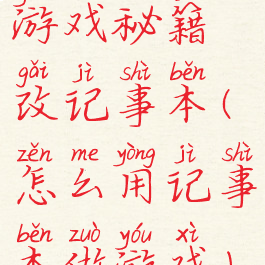 游戏秘籍
gǎi jì shì běn
改记事本(
zěn me yòng jì shì
怎么用记事
běn zuò yóu xì
本做游戏)